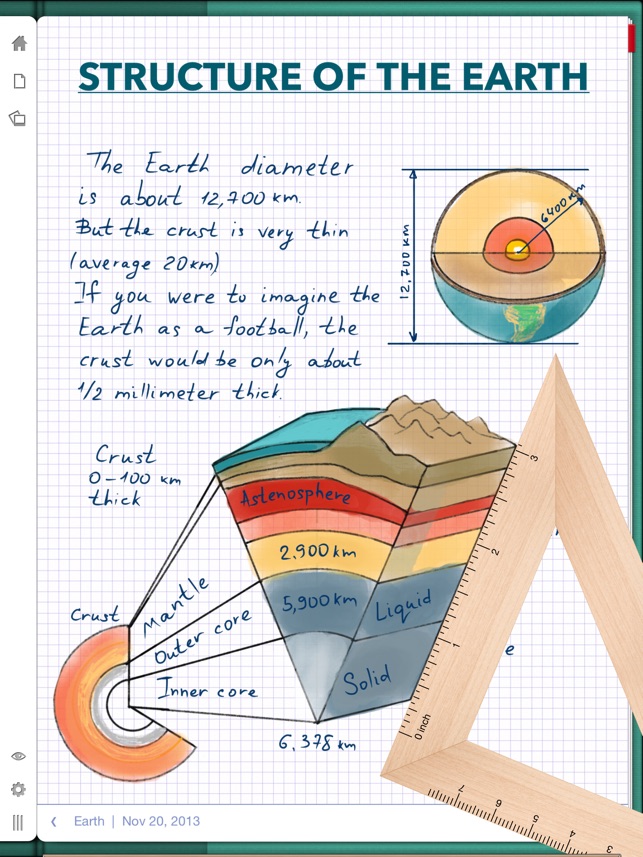 STRUCTURE OF THE EARTH
The Earth diameter
is about 12,700 km.
But the crust is very thin
(average 20km)
If you were to imagine the
Earth as a football, the
crust would be only about
1/2 millimeter thick.
12,700 km
6400 km
Crust
0-100 km
thick
Astenosphere
2,900 km
5,900 km
Liquid
Solid
Crust
Mantle
Outer core
Inner core
6,378 km
e
3
2
1
0 inch
7
6
5
4
3
Earth | Nov 20, 2013